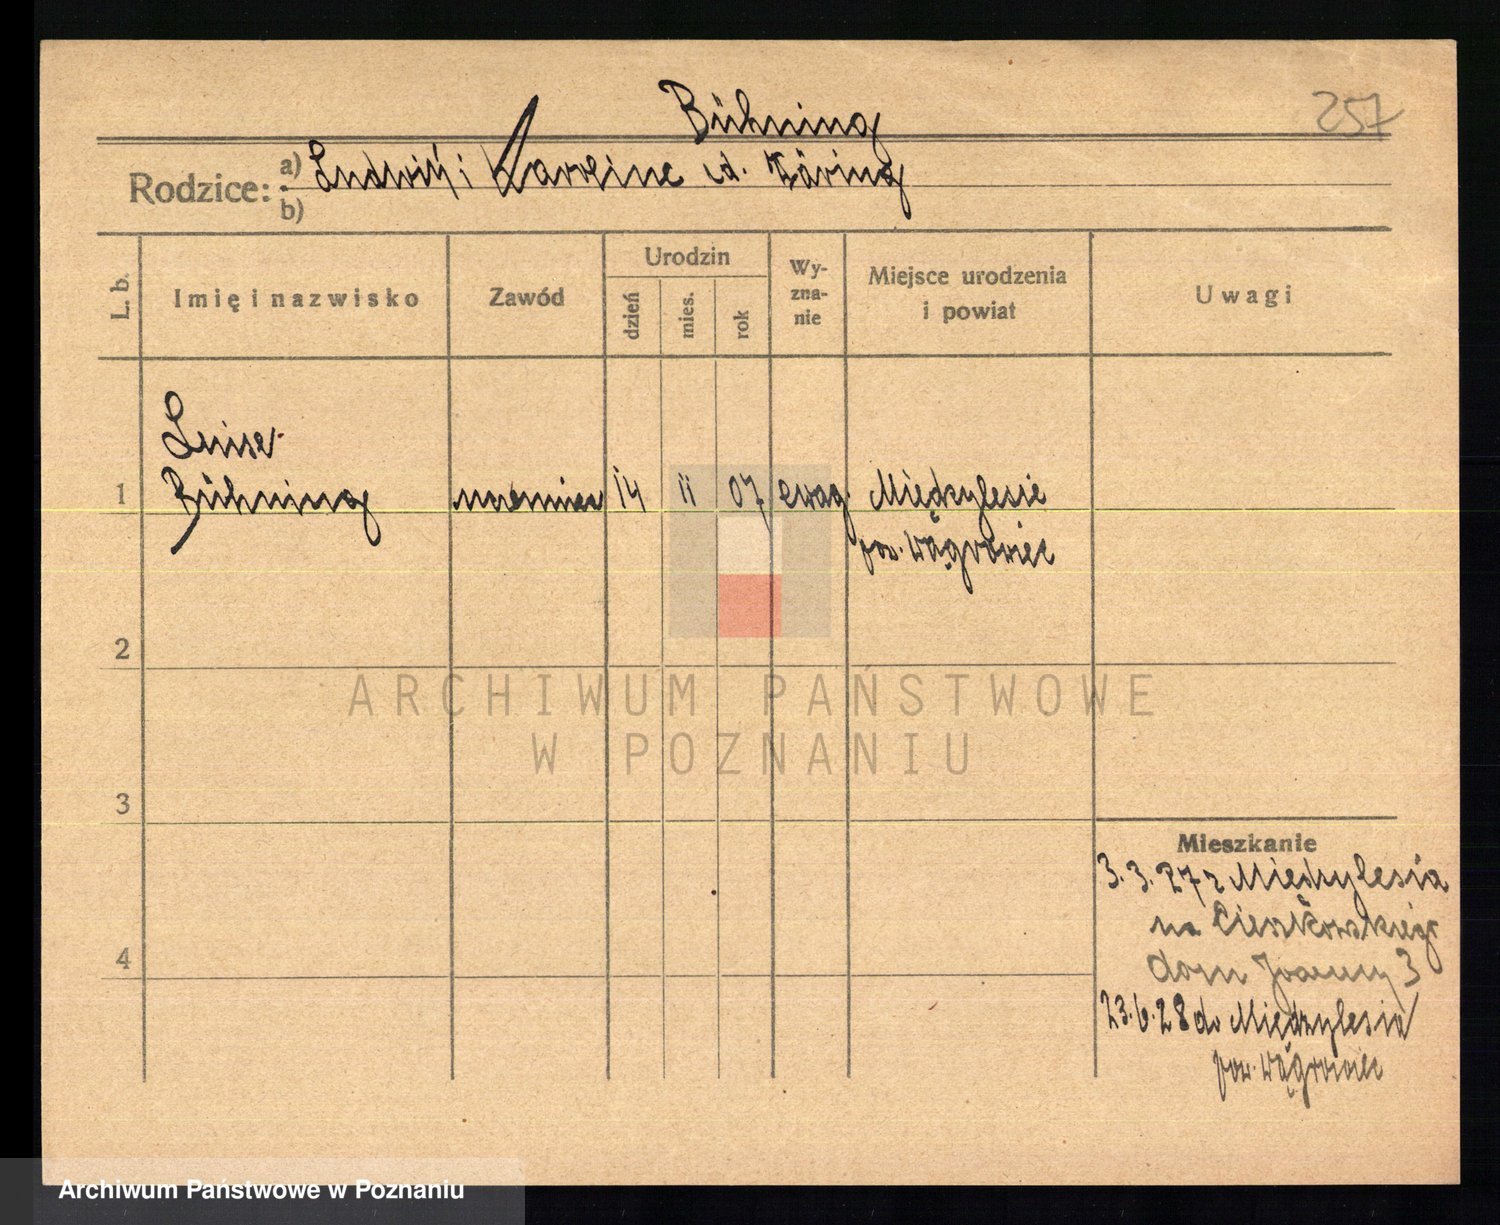 Bühning
257
Rodzice: a) Ludwik i Karoline
b)
L. b.
Imię i nazwisko
Zawód
Urodzin
dzień
mies.
rok
Wy-
zna-
nie
Miejsce urodzenia
i powiat
Uwagi
Luise
1 Bühning 14 11 07 ewag. Międzylesie
pow. Wągrowiec
2
3
4
Mieszkanie
3.3.27 z Międzylesia
na Cieszkowskiego
dom 3
23.6.28 do Międzylesia
pow. Wągrowiec
ARCHIWUM PAŃSTWOWE
W POZNANIU
Archiwum Państwowe w Poznaniu